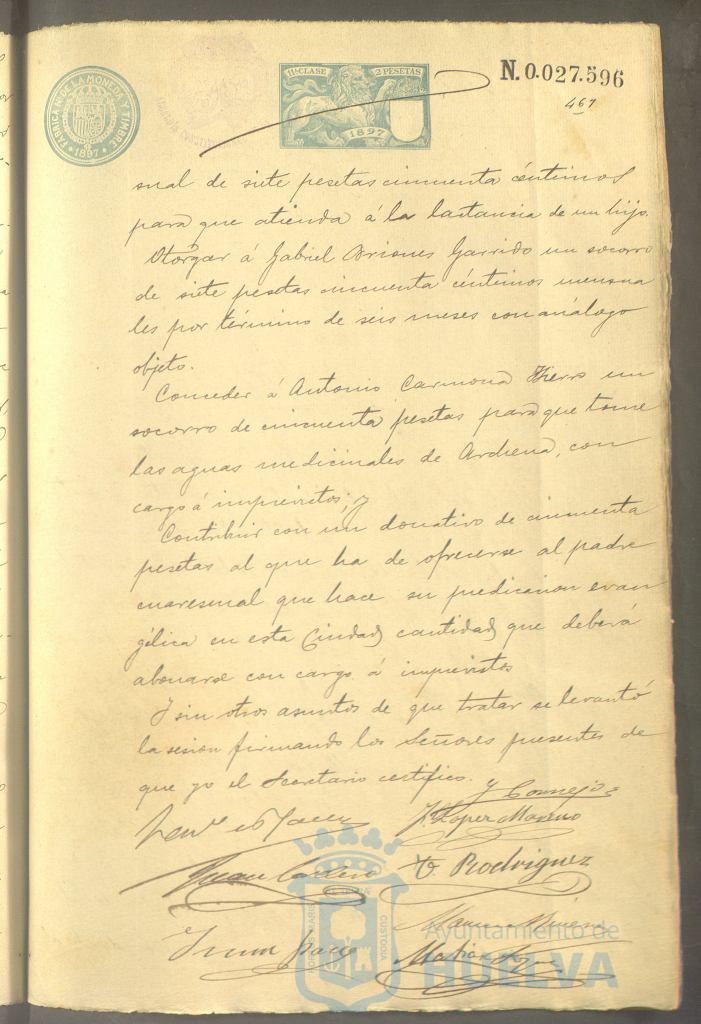 FABRICA N. DE LA MONEDA Y TIMBRE
1897
11ª CLASE 2 PESETAS
1897
N.0.027.596
467
sual de siete pesetas cincuenta céntimos
para que atienda á la lactancia de un hijo.
Otorgar á Gabriel Garrido un socorro
de siete pesetas cincuenta céntimos mensua
les por término de seis meses con análogo
objeto.
Conceder á Antonio Carmona Hierro un
socorro de cincuenta pesetas para que tome
las aguas medicinales de Archena, con
cargo á imprevistos; y
Contribuir con un donativo de cincuenta
pesetas al que ha de ofrecerse al padre
cuaresmal que hace su predicación evan
gélica en esta Ciudad, cantidad que deberá
abonarse con cargo á imprevistos
Y sin otros asuntos de que tratar se levantó
la sesión firmando los Señores presentes de
que yo el Secretario certifico.
J. Lopez Moreno
Juan Cordero
V. Rodriguez
PORTUS MARIS ET TERRAE CUSTODIA
Ayuntamiento de
HUELVA